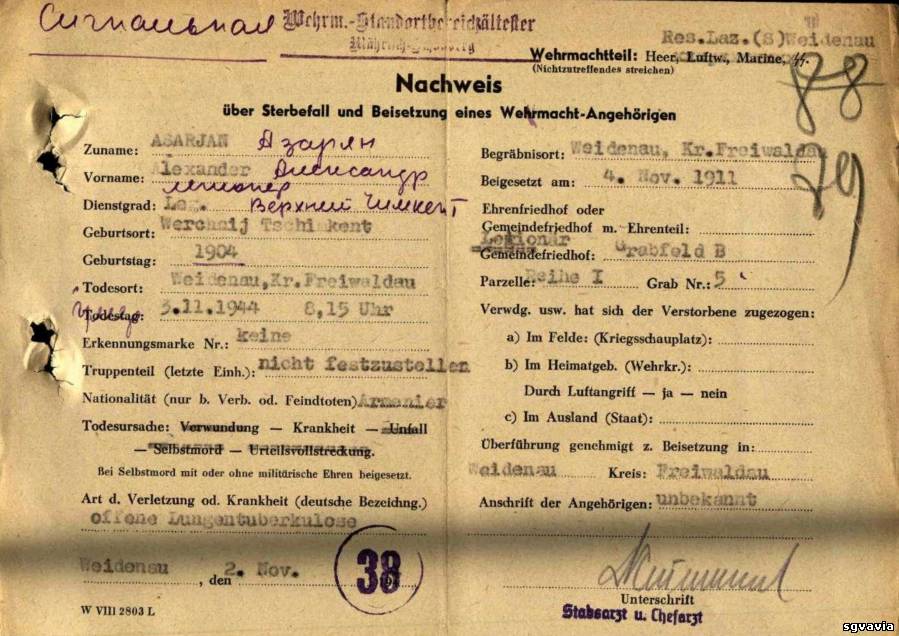 Сигнальная
Wehrm.-Standortbereichältester
Res.Laz.(S)Weidenau
Wehrmachtteil: Heer, Luftw., Marine, SS.
(Nichtzutreffendes streichen)
88
79
Nachweis
über Sterbefall und Beisetzung eines Wehrmacht-Angehörigen
Zuname: ASARJAN Азарян
Vorname: Alexander Александр
Dienstgrad: Leg. легионер
Geburtsort: Werchnij Tschimkent Верхний Чимкент
Geburtstag: 1904
Todesort: Weidenau,Kr.Freiwaldau
Todestag: 3.11.1944 8,15 Uhr
Erkennungsmarke Nr.: keine
Truppenteil (letzte Einh.): nicht festzustellen
Nationalität (nur b. Verb. od. Feindtoten) Armenier
Todesursache: Verwundung — Krankheit — Unfall
— Selbstmord — Urteilsvollstreckung.
Bei Selbstmord mit oder ohne militärische Ehren beigesetzt.
Art d. Verletzung od. Krankheit (deutsche Bezeichng.)
offene Lungentuberkulose
Weidenau, den 2. Nov.
38
W VIII 2803 L
Begräbnisort: Weidenau, Kr.Freiwaldau
Beigesetzt am: 4. Nov. 1911
Ehrenfriedhof oder
Gemeindefriedhof m. Ehrenteil:
Legionär
Gemeindefriedhof: Grabfeld B
Parzelle: Reihe I Grab Nr.: 5
Verwdg. usw. hat sich der Verstorbene zugezogen:
a) Im Felde: (Kriegsschauplatz):
b) Im Heimatgeb. (Wehrkr.):
Durch Luftangriff — ja — nein
c) Im Ausland (Staat):
Überführung genehmigt z. Beisetzung in:
Weidenau Kreis: Freiwaldau
Anschrift der Angehörigen: unbekannt
Unterschrift
Stabsarzt u. Chefarzt
sgvavia